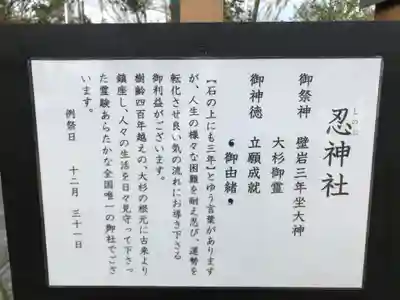 忍神社
しのじ
御祭神 壁岩三年坐大神
大杉御霊
御神徳 立願成就
御由緒
【石の上にも三年】とゆう言葉があります
が、人生の様々な困難を耐え忍び、運勢を
転化させ良い気の流れにお導き下さる
御利益がございます。
樹齢四百年越えの、大杉の根元に古来より
鎮座し、人々の生活を日々見守って下さっ
た霊験あらたかな全国唯一の御社でござ
います。
例祭日 十二月 三十一日